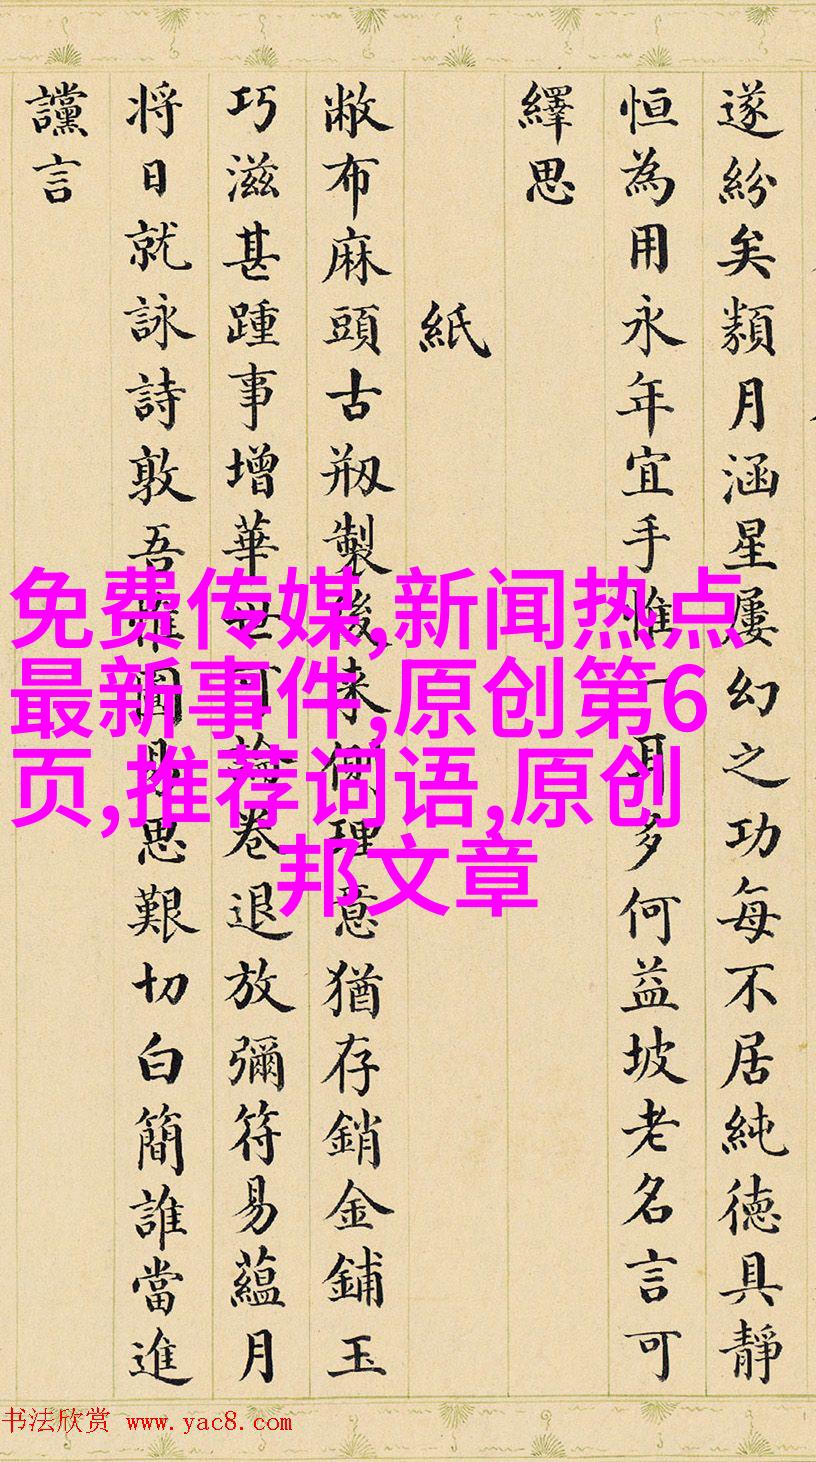 遂紛矣類月涵星屢幻之功每不居純德具靜
恒為用永年宜手惟一耳多何益坡老名言可
繹思
紙
敝布麻頭古剏製後來側理意猶存銷金鋪玉
巧滋甚踵事增華世可論卷退放彌符易蘊月
將日就詠詩敦吾惟圖易思艱切白簡誰當進
讜言
免费传媒,新闻热点
最新事件,原创第6
页,推荐词语,原创
邦文章
书法欣赏 www.yac8.com